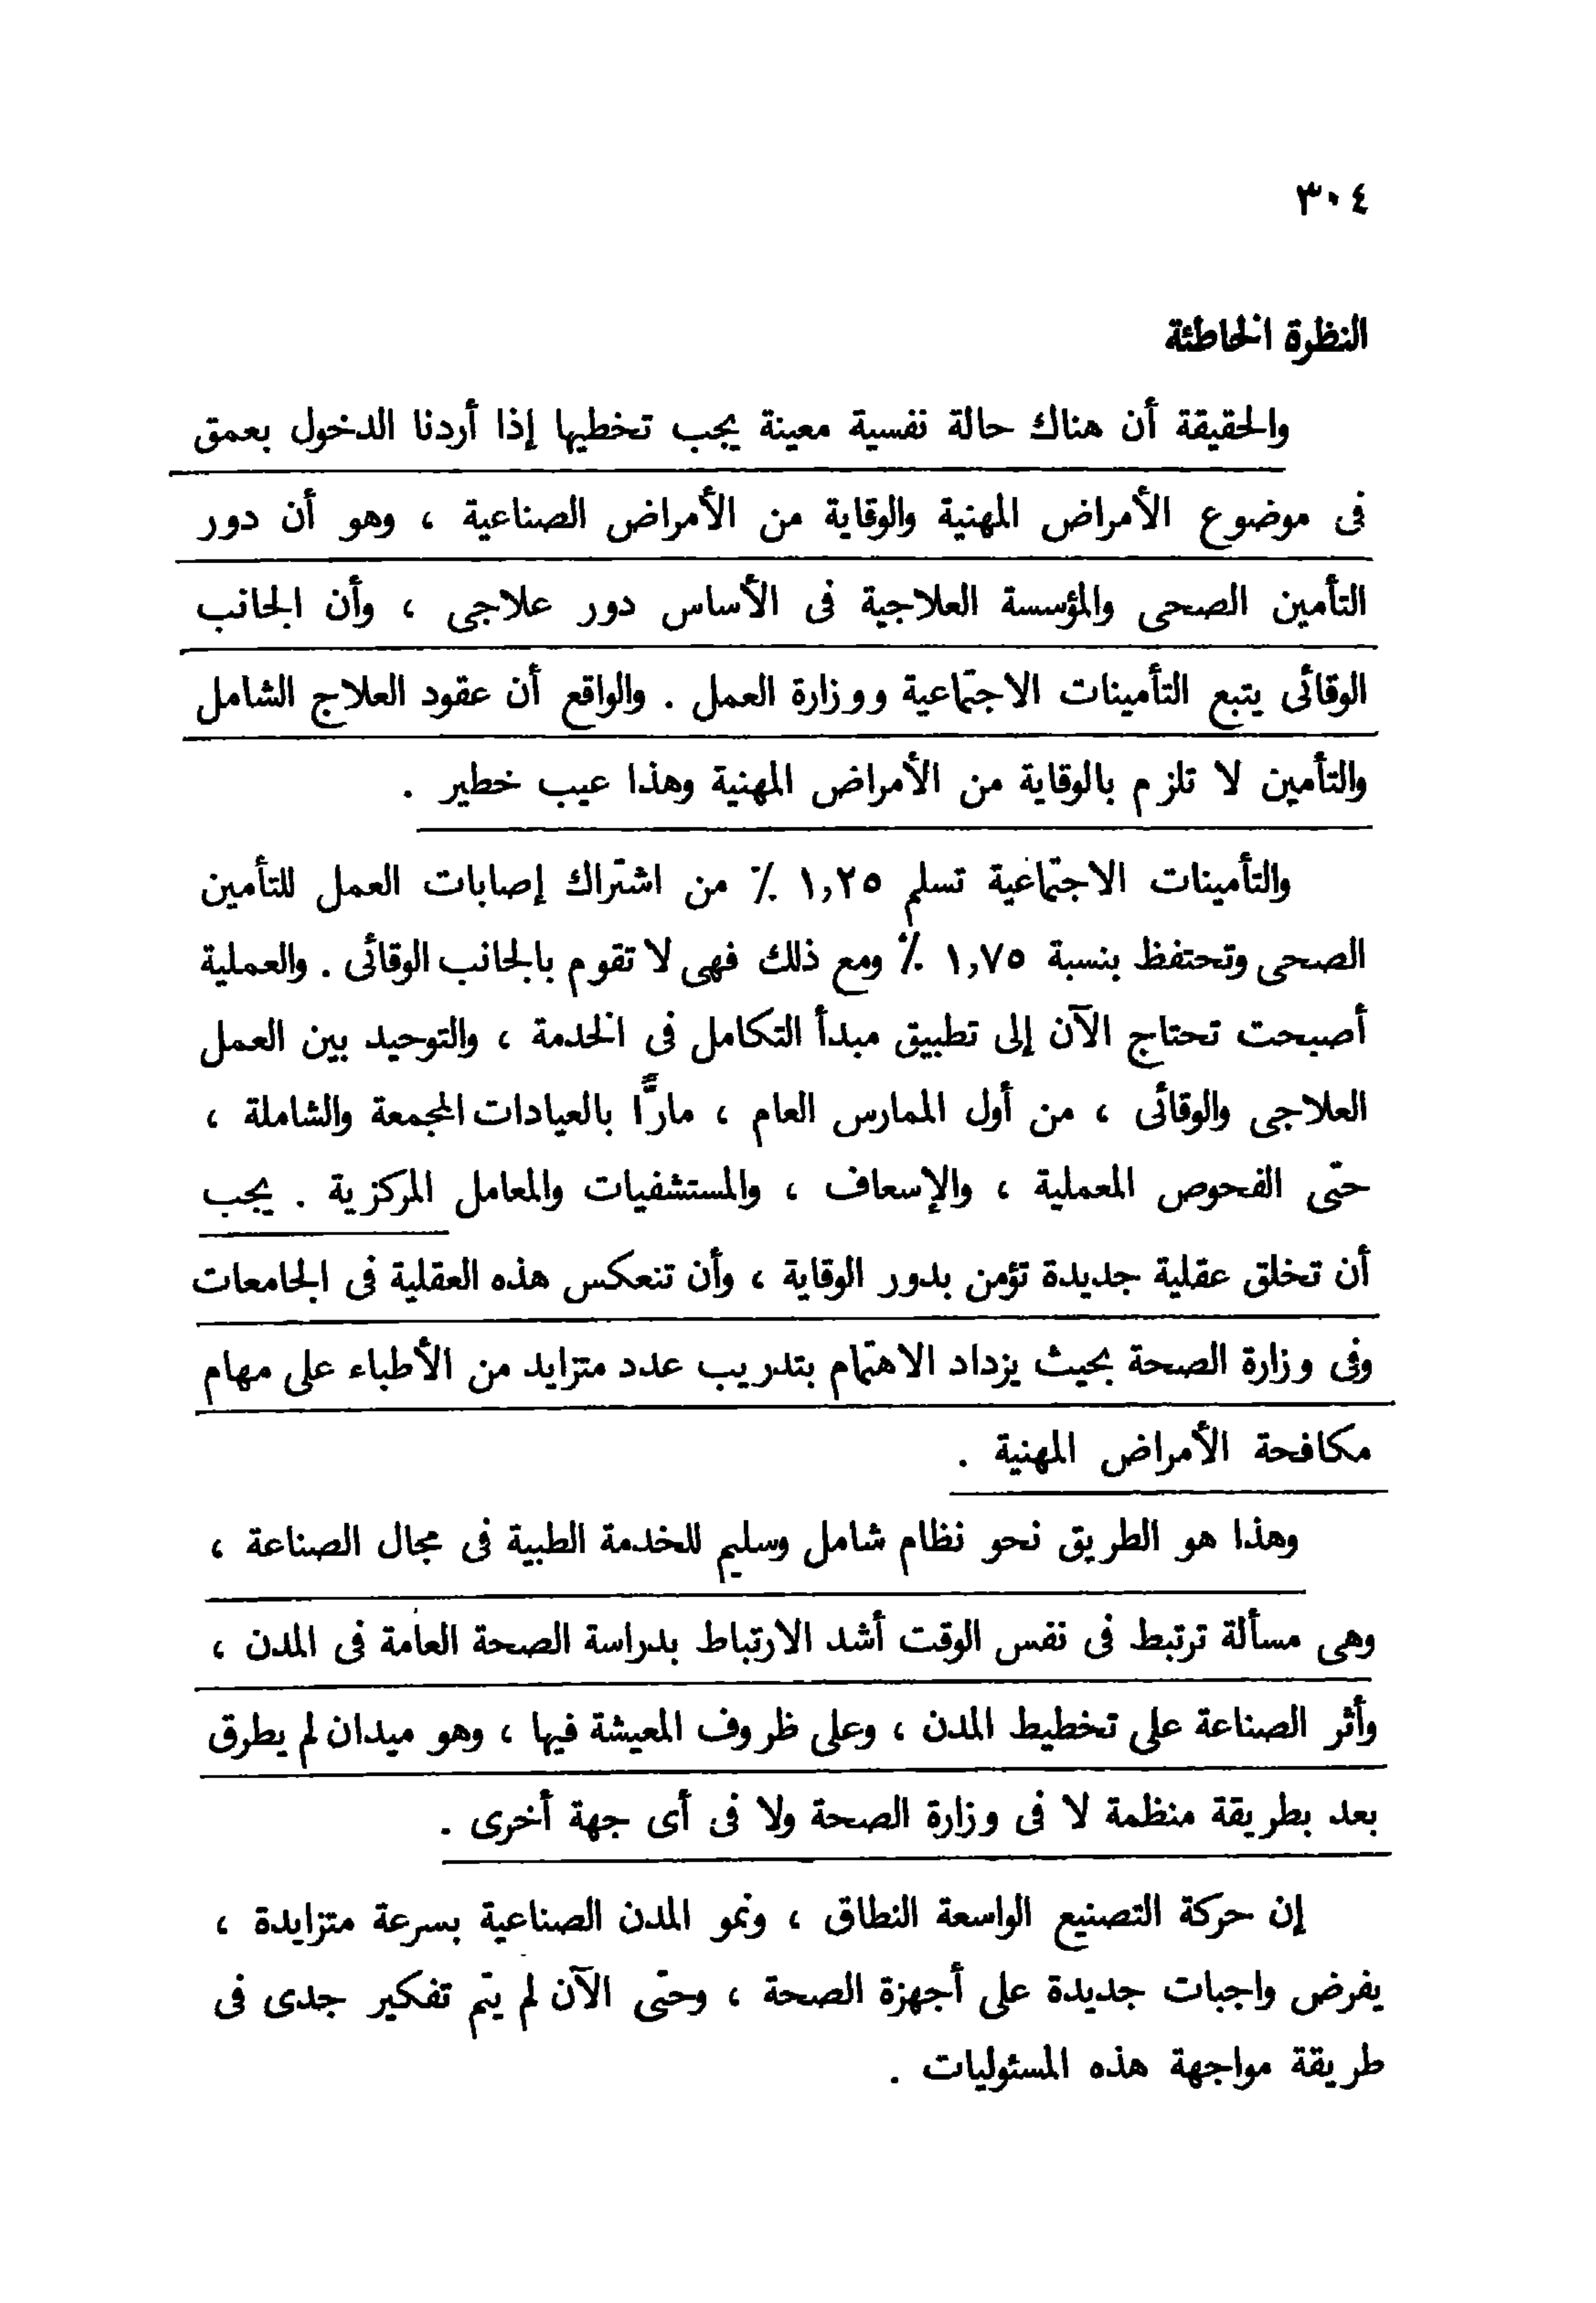 ٣٠٤
النظرة الخاطئة
والحقيقة أن هناك حالة نفسية معينة يجب تخطيها إذا أردنا الدخول بعمق
فى موضوع الأمراض المهنية والوقاية من الأمراض الصناعية ، وهو أن دور
التأمين الصحى والمؤسسة العلاجية فى الأساس دور علاجى ، وأن الجانب
الوقائى يتبع التأمينات الاجتماعية ووزارة العمل . والواقع أن عقود العلاج الشامل
والتأمين لا تلزم بالوقاية من الأمراض المهنية وهذا عيب خطير .
والتأمينات الاجتماعية تسلم ١,٢٥ ٪ من اشتراك إصابات العمل للتأمين
الصحى وتحتفظ بنسبة ١,٧٥ ٪ ومع ذلك فهى لا تقوم بالجانب الوقائى . والعملية
أصبحت تحتاج الآن إلى تطبيق مبدأ التكامل فى الخدمة ، والتوحيد بين العمل
العلاجى والوقائى ، من أول الممارس العام ، مارًّا بالعيادات المجمعة والشاملة ،
حتى الفحوص المعملية ، والإسعاف ، والمستشفيات والمعامل المركزية . يجب
أن تخلق عقلية جديدة تؤمن بدور الوقاية ، وأن تنعكس هذه العقلية فى الجامعات
وفى وزارة الصحة بحيث يزداد الاهتمام بتدريب عدد متزايد من الأطباء على مهام
مكافحة الأمراض المهنية .
وهذا هو الطريق نحو نظام شامل وسليم للخدمة الطبية فى مجال الصناعة ،
وهى مسألة ترتبط فى نفس الوقت أشد الارتباط بدراسة الصحة العامة فى المدن ،
وأثر الصناعة على تخطيط المدن ، وعلى ظروف المعيشة فيها ، وهو ميدان لم يطرق
بعد بطريقة منظمة لا فى وزارة الصحة ولا فى أى جهة أخرى .
إن حركة التصنيع الواسعة النطاق ، ونمو المدن الصناعية بسرعة متزايدة ،
يفرض واجبات جديدة على أجهزة الصحة ، وحتى الآن لم يتم تفكير جدى فى
طريقة مواجهة هذه المسئوليات .